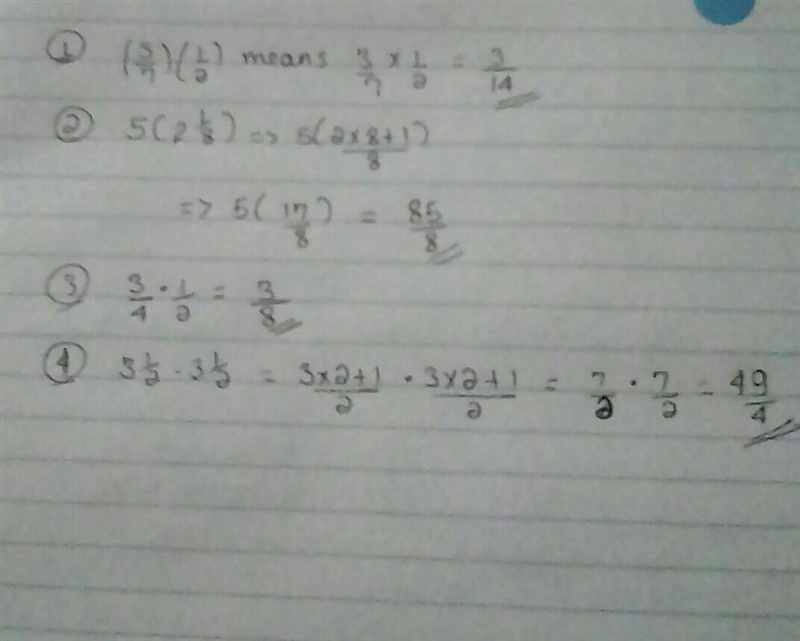 ① (3/7)(1/2) means 3/7 × 1/2 = 3/14
② 5(2 1/8) => 5(2×8+1/8)
=> 5(17/8) = 85/8
③ 3/4 · 1/2 = 3/8
④ 3 1/2 · 3 1/2 = 3×2+1/2 · 3×2+1/2 = 7/2 · 7/2 = 49/4